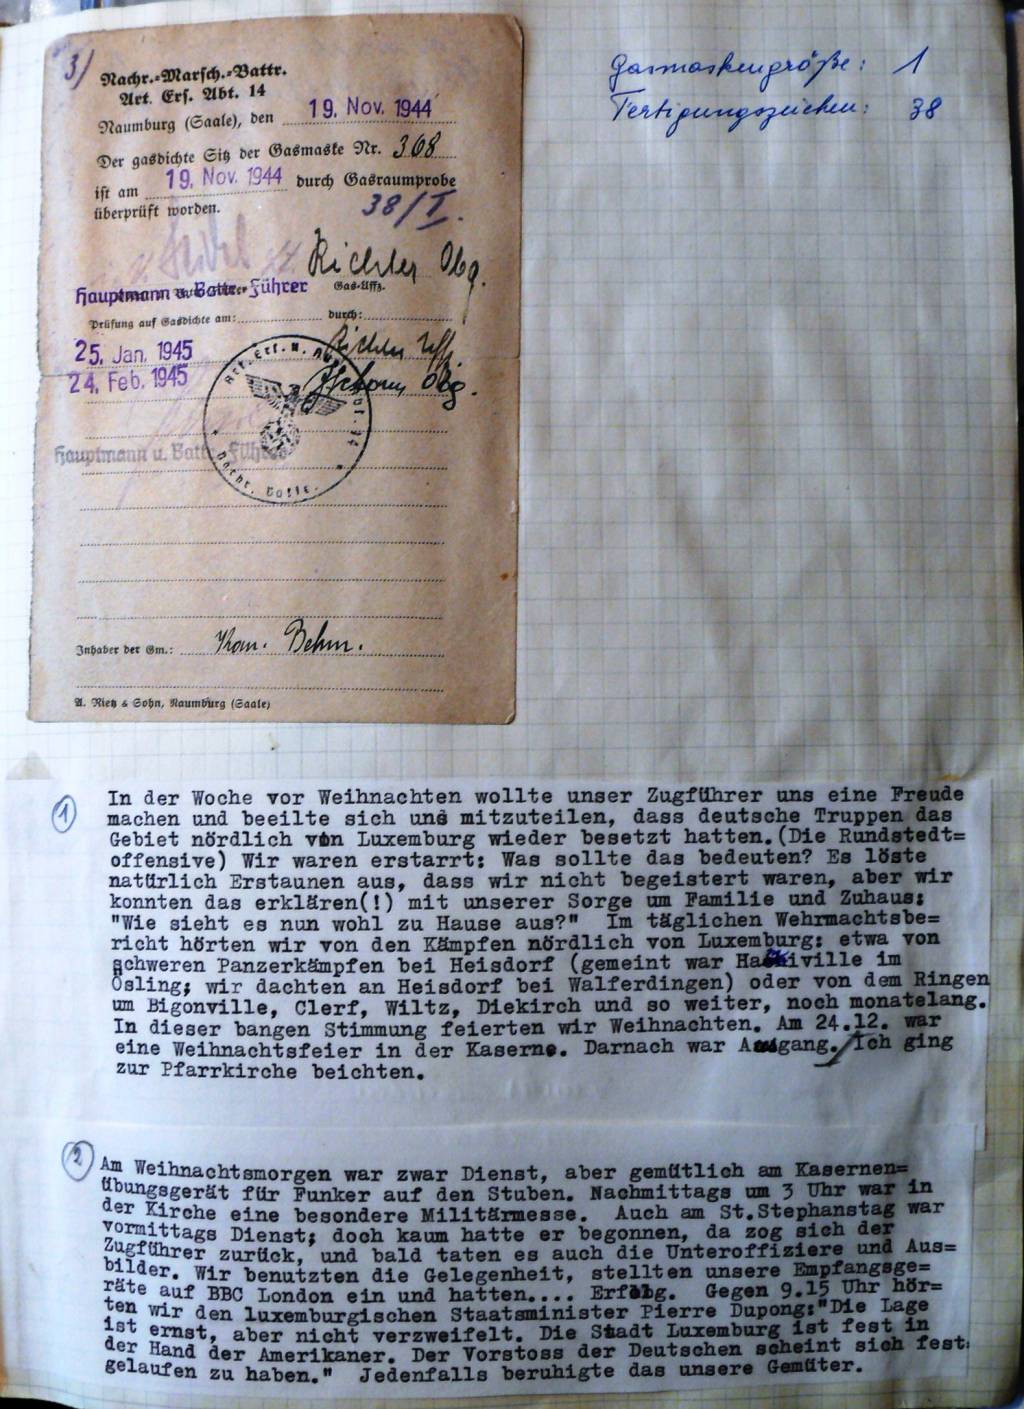 3/
Nachr.=Marsch.=Battr.
Art. Ers. Abt. 14
Naumburg (Saale), den 19. Nov. 1944
Der gasdichte Sitz der Gasmaske Nr. 368
ist am 19. Nov. 1944 durch Gasraumprobe
überprüft worden. 38/I.
Richter Obg.
Hauptmann u. Battr.-Führer Gas-Uffz.
Prüfung auf Gasdichte am: durch:
25. Jan. 1945 Richter Uffz.
24. Feb. 1945 Obg.
Hauptmann u. Battr.-Führer
Inhaber der Gm.: Kan. Behm.
A. Rietz & Sohn, Naumburg (Saale)
Gasmaskengröße: 1
Fertigungszeichen: 38
1
In der Woche vor Weihnachten wollte unser Zugführer uns eine Freude
machen und beeilte sich uns mitzuteilen, dass deutsche Truppen das
Gebiet nördlich von Luxemburg wieder besetzt hatten.(Die Rundstedt=
offensive) Wir waren erstarrt: Was sollte das bedeuten? Es löste
natürlich Erstaunen aus, dass wir nicht begeistert waren, aber wir
konnten das erklären(!) mit unserer Sorge um Familie und Zuhaus:
"Wie sieht es nun wohl zu Hause aus?" Im täglichen Wehrmachtsbe=
richt hörten wir von den Kämpfen nördlich von Luxemburg: etwa von
schweren Panzerkämpfen bei Heisdorf (gemeint war im
Ösling; wir dachten an Heisdorf bei Walferdingen) oder von dem Ringen
um Bigonville, Clerf, Wiltz, Diekirch und so weiter, noch monatelang.
In dieser bangen Stimmung feierten wir Weihnachten. Am 24.12. war
eine Weihnachtsfeier in der Kaserne. Darnach war Ausgang. Ich ging
zur Pfarrkirche beichten.
2
Am Weihnachtsmorgen war zwar Dienst, aber gemütlich am Kasernen=
übungsgerät für Funker auf den Stuben. Nachmittags um 3 Uhr war in
der Kirche eine besondere Militärmesse. Auch am St.Stephanstag war
vormittags Dienst; doch kaum hatte er begonnen, da zog sich der
Zugführer zurück, und bald taten es auch die Unteroffiziere und Aus=
bilder. Wir benutzten die Gelegenheit, stellten unsere Empfangsge=
räte auf BBC London ein und hatten.... Erfolg. Gegen 9.15 Uhr hör=
ten wir den luxemburgischen Staatsminister Pierre Dupong:"Die Lage
ist ernst, aber nicht verzweifelt. Die Stadt Luxemburg ist fest in
der Hand der Amerikaner. Der Vorstoss der Deutschen scheint sich fest=
gelaufen zu haben." Jedenfalls beruhigte das unsere Gemüter.